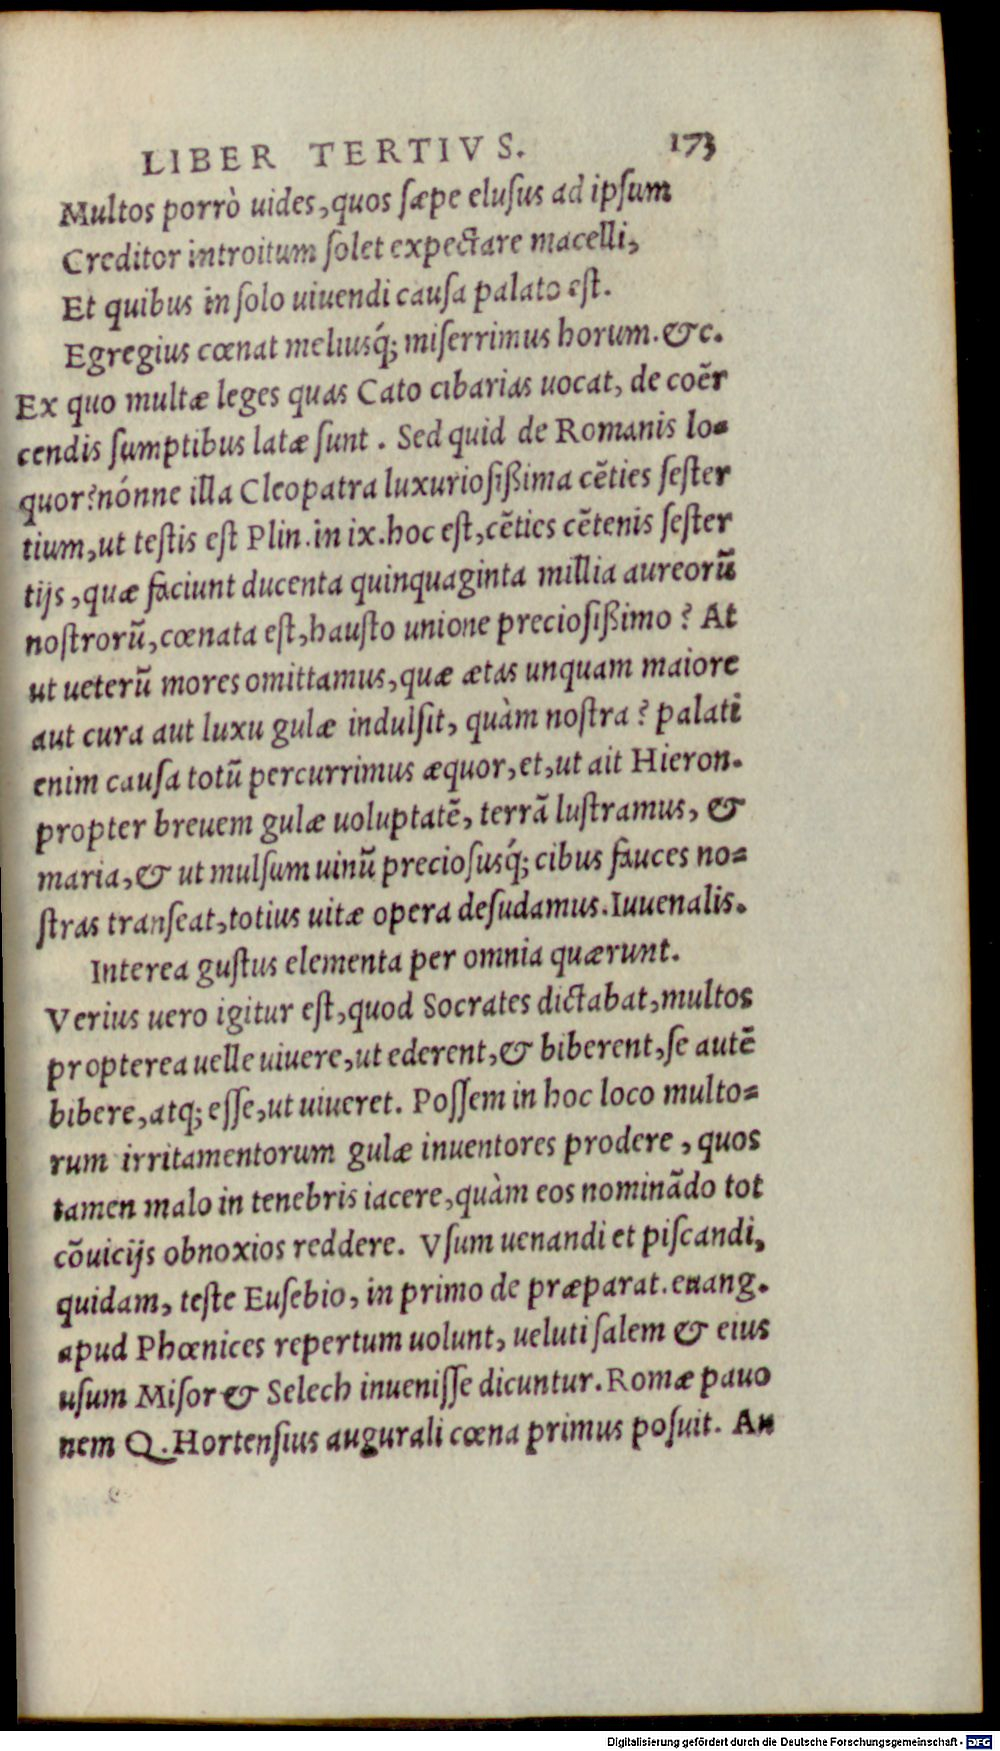 LIBER TERTIVS. 173
Multos porrò uides, quos sæpe elusus ad ipsum
Creditor introitum solet expectare macelli,
Et quibus in solo uiuendi causa palato est.
Egregius cœnat meliusq́; miserrimus horum. &c.
Ex quo multæ leges quas Cato cibarias uocat, de coẽr
cendis sumptibus latæ sunt. Sed quid de Romanis lo=
quor? nónne illa Cleopatra luxuriosißima cẽties sester
tium, ut testis est Plin. in ix. hoc est, cẽties cẽtenis sester
tijs, quæ faciunt ducenta quinquaginta millia aureorũ
nostrorũ, cœnata est, hausto unione preciosißimo? At
ut ueterũ mores omittamus, quæ ætas unquam maiore
aut cura aut luxu gulæ indulsit, quàm nostra? palati
enim causa totũ percurrimus æquor, et, ut ait Hieron.
propter breuem gulæ uoluptatẽ, terrã lustramus, &
maria, & ut mulsum uinũ preciosusq́; cibus fauces no=
stras transeat, totius uitæ opera desudamus. Iuuenalis.
Interea gustus elementa per omnia quærunt.
Verius uero igitur est, quod Socrates dictabat, multos
propterea uelle uiuere, ut ederent, & biberent, se autẽ
bibere, atq; esse, ut uiueret. Possem in hoc loco multo=
rum irritamentorum gulæ inuentores prodere, quos
tamen malo in tenebris iacere, quàm eos nominãdo tot
cõuicijs obnoxios reddere. Vsum uenandi et piscandi,
quidam, teste Eusebio, in primo de præparat. euang.
apud Phœnices repertum uolunt, ueluti salem & eius
usum Misor & Selech inuenisse dicuntur. Romæ pauo
nem Q. Hortensius augurali cœna primus posuit. An
Digitalisierung gefördert durch die Deutsche Forschungsgemeinschaft - DFG